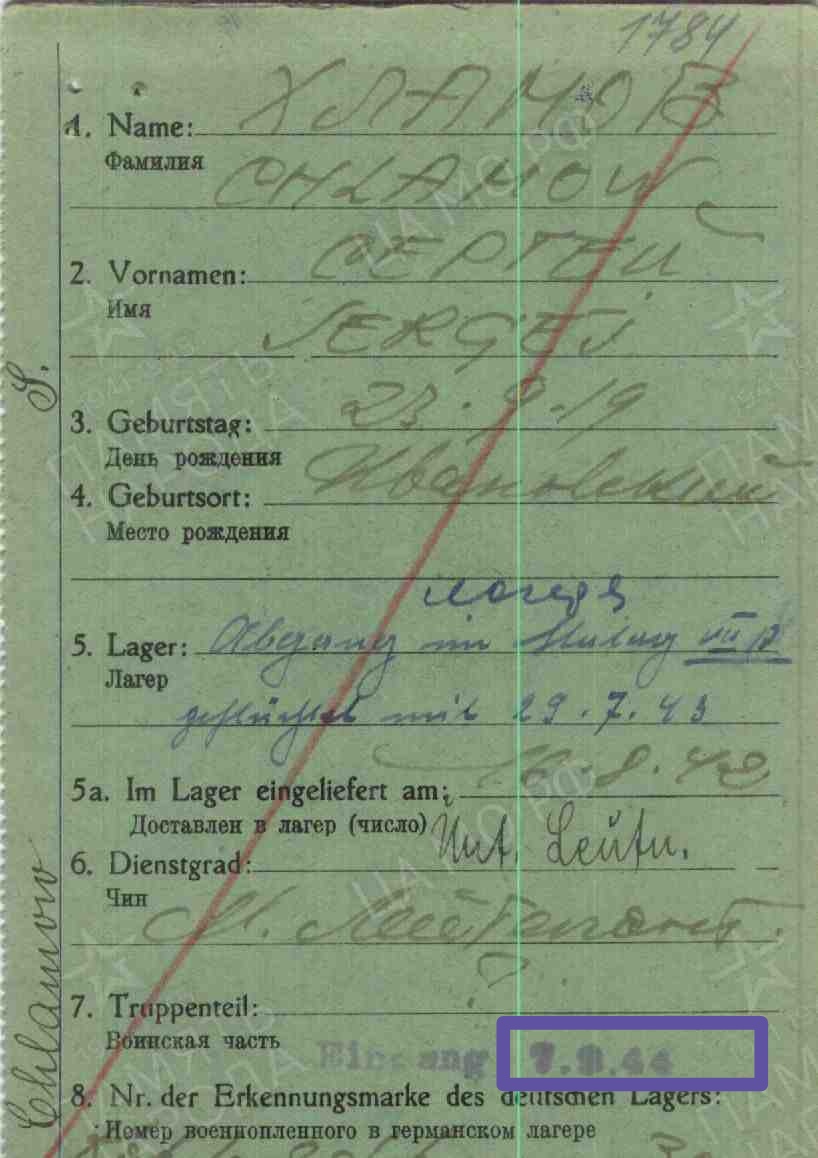 1784
1. Name: ХЛАМОВ
Фамилия
CHLAMOW
2. Vornamen: СЕРГЕЙ
Имя
SERGEJ
S.
3. Geburtstag: 23.9.19
День рождения
4. Geburtsort: Ивановский
Место рождения
лагерь
5. Lager: Abgang im Stalag
Лагерь
geflüchtet mit 29.7.43
5a. Im Lager eingeliefert am: 8.42
Доставлен в лагер (число)
6. Dienstgrad: Unt. Leutn.
Чин
М. Лейтенант.
?
7. Truppenteil:
Воинская часть
Eingang
8. Nr. der Erkennungsmarke des deutschen Lagers:
Номер военнопленного в германском лагере
Chlamow